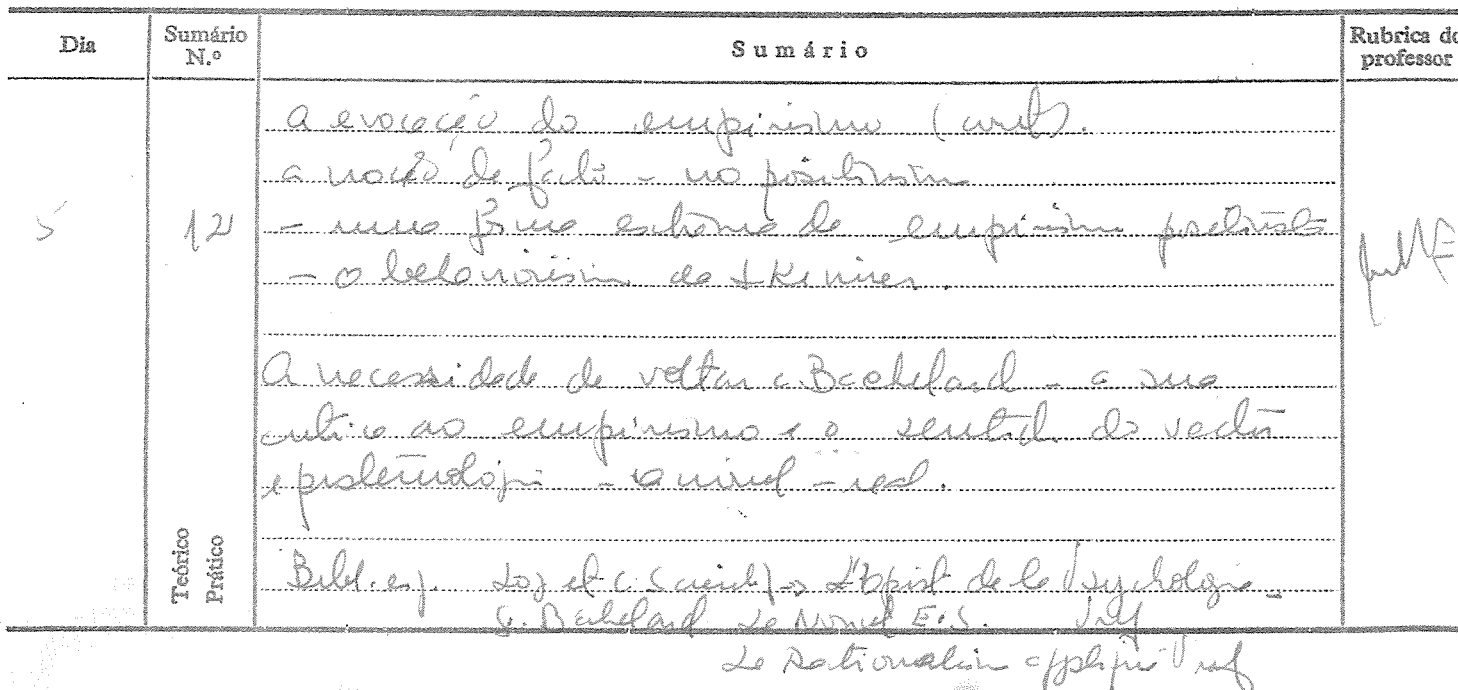 Dia
Sumário N.º
Sumário
Rubrica do professor
A evocação do empirismo (cont).
a noção de facto - no positivismo
5
12
- numa forma extrema de empirismo positivista
- o behaviorismo de Skinner.
A necessidade de voltar a Bachelard - a sua
crítica ao empirismo e o sentido do vector
epistemológico - racional - real.
Teórico
Prático
Bibl. Log et C. Scient) -> L'Epist de la Psychologie -
G. Bachelard Le Nouvel E.S. Pref
Le Rationalisme appliqué Pref